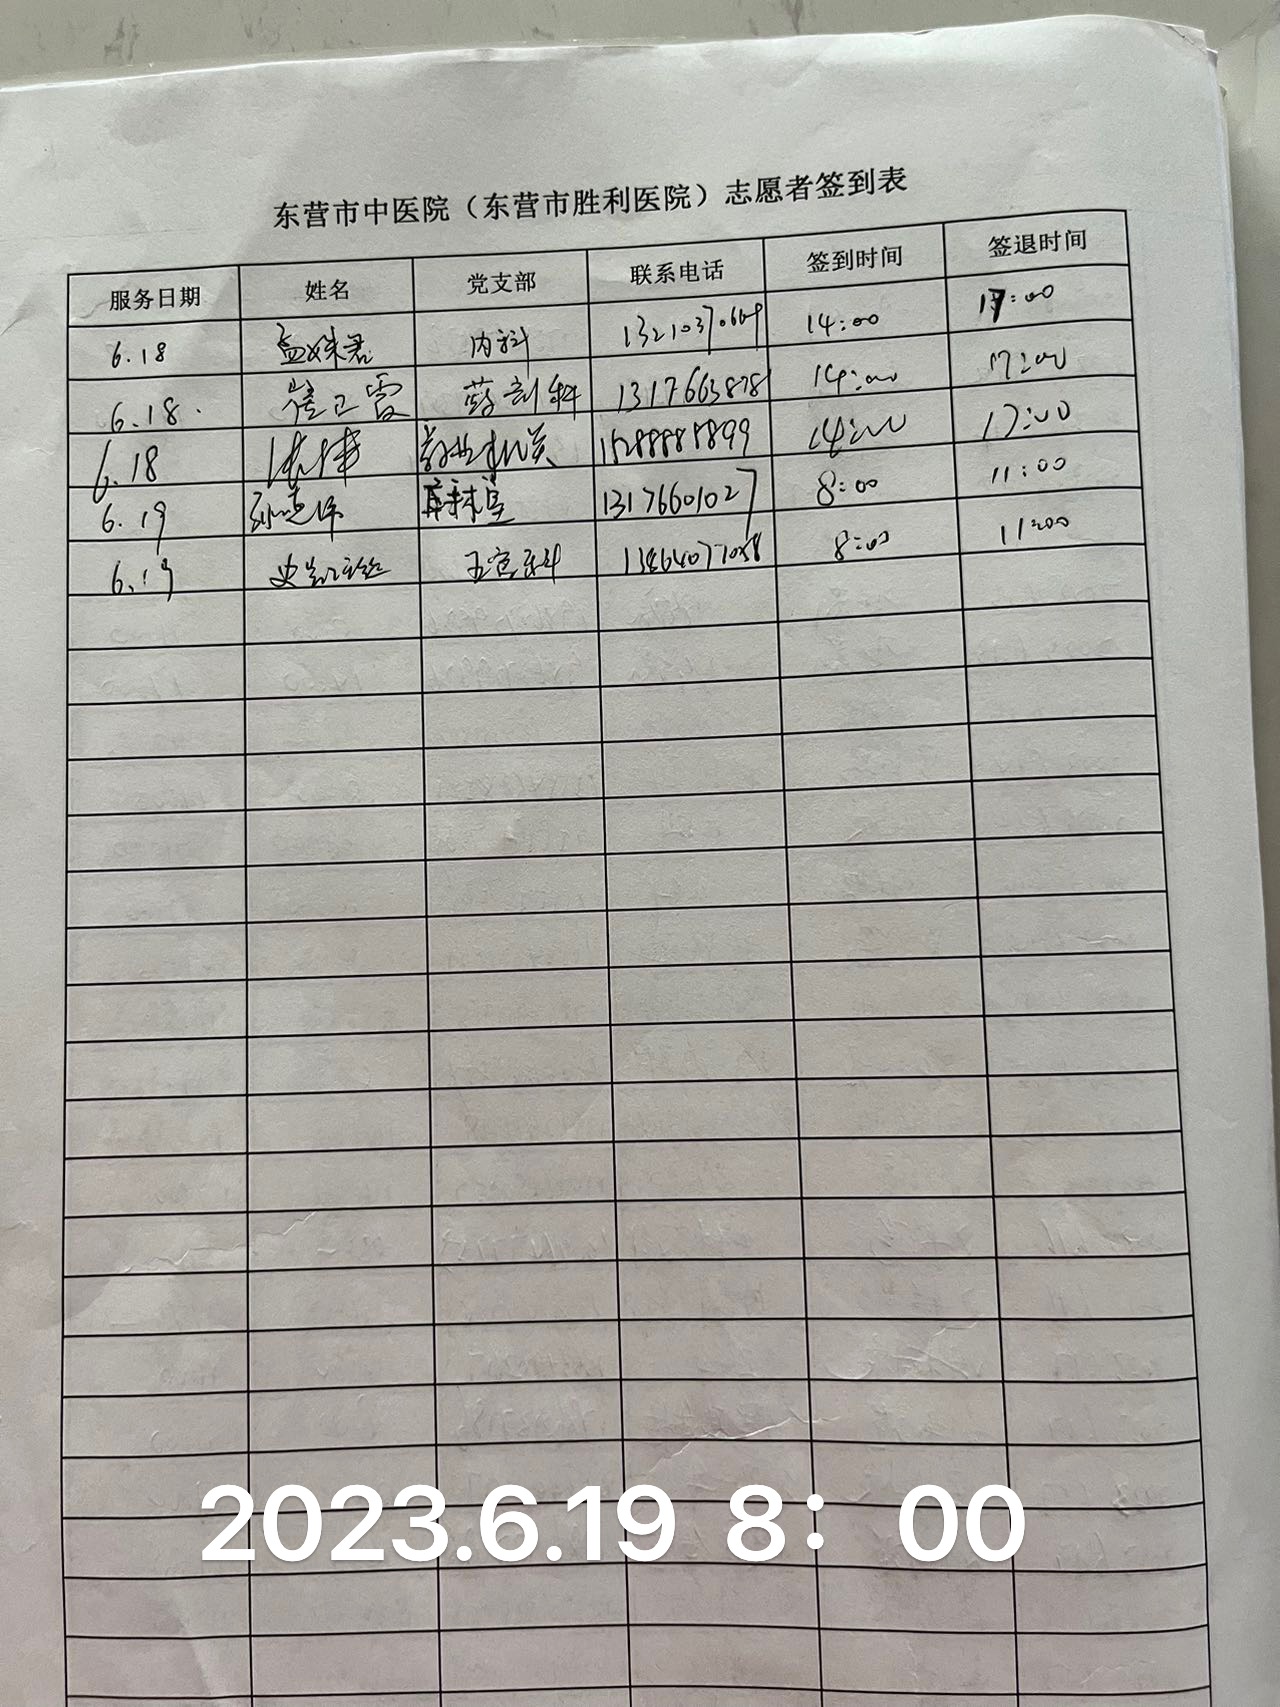 东营市中医院（东营市胜利医院）志愿者签到表
服务日期 姓名 党支部 联系电话 签到时间 签退时间
6.18 孟姝君 内科 14:00 17:00
6.18. 崔卫霞 药剂科 13176638781 14:00 17:00
6.18 15288885899 14:00 17:00
6.19 13176601027 8:00 11:00
6.19 五官科 8:00 11:00
2023.6.19 8：00